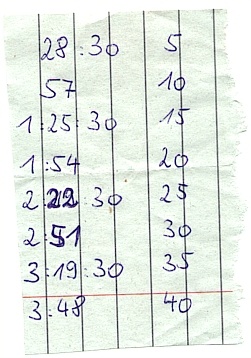 28:30 5
57 10
1:25:30 15
1:54 20
2:22:30 25
2:51 30
3:19:30 35
3:48 40